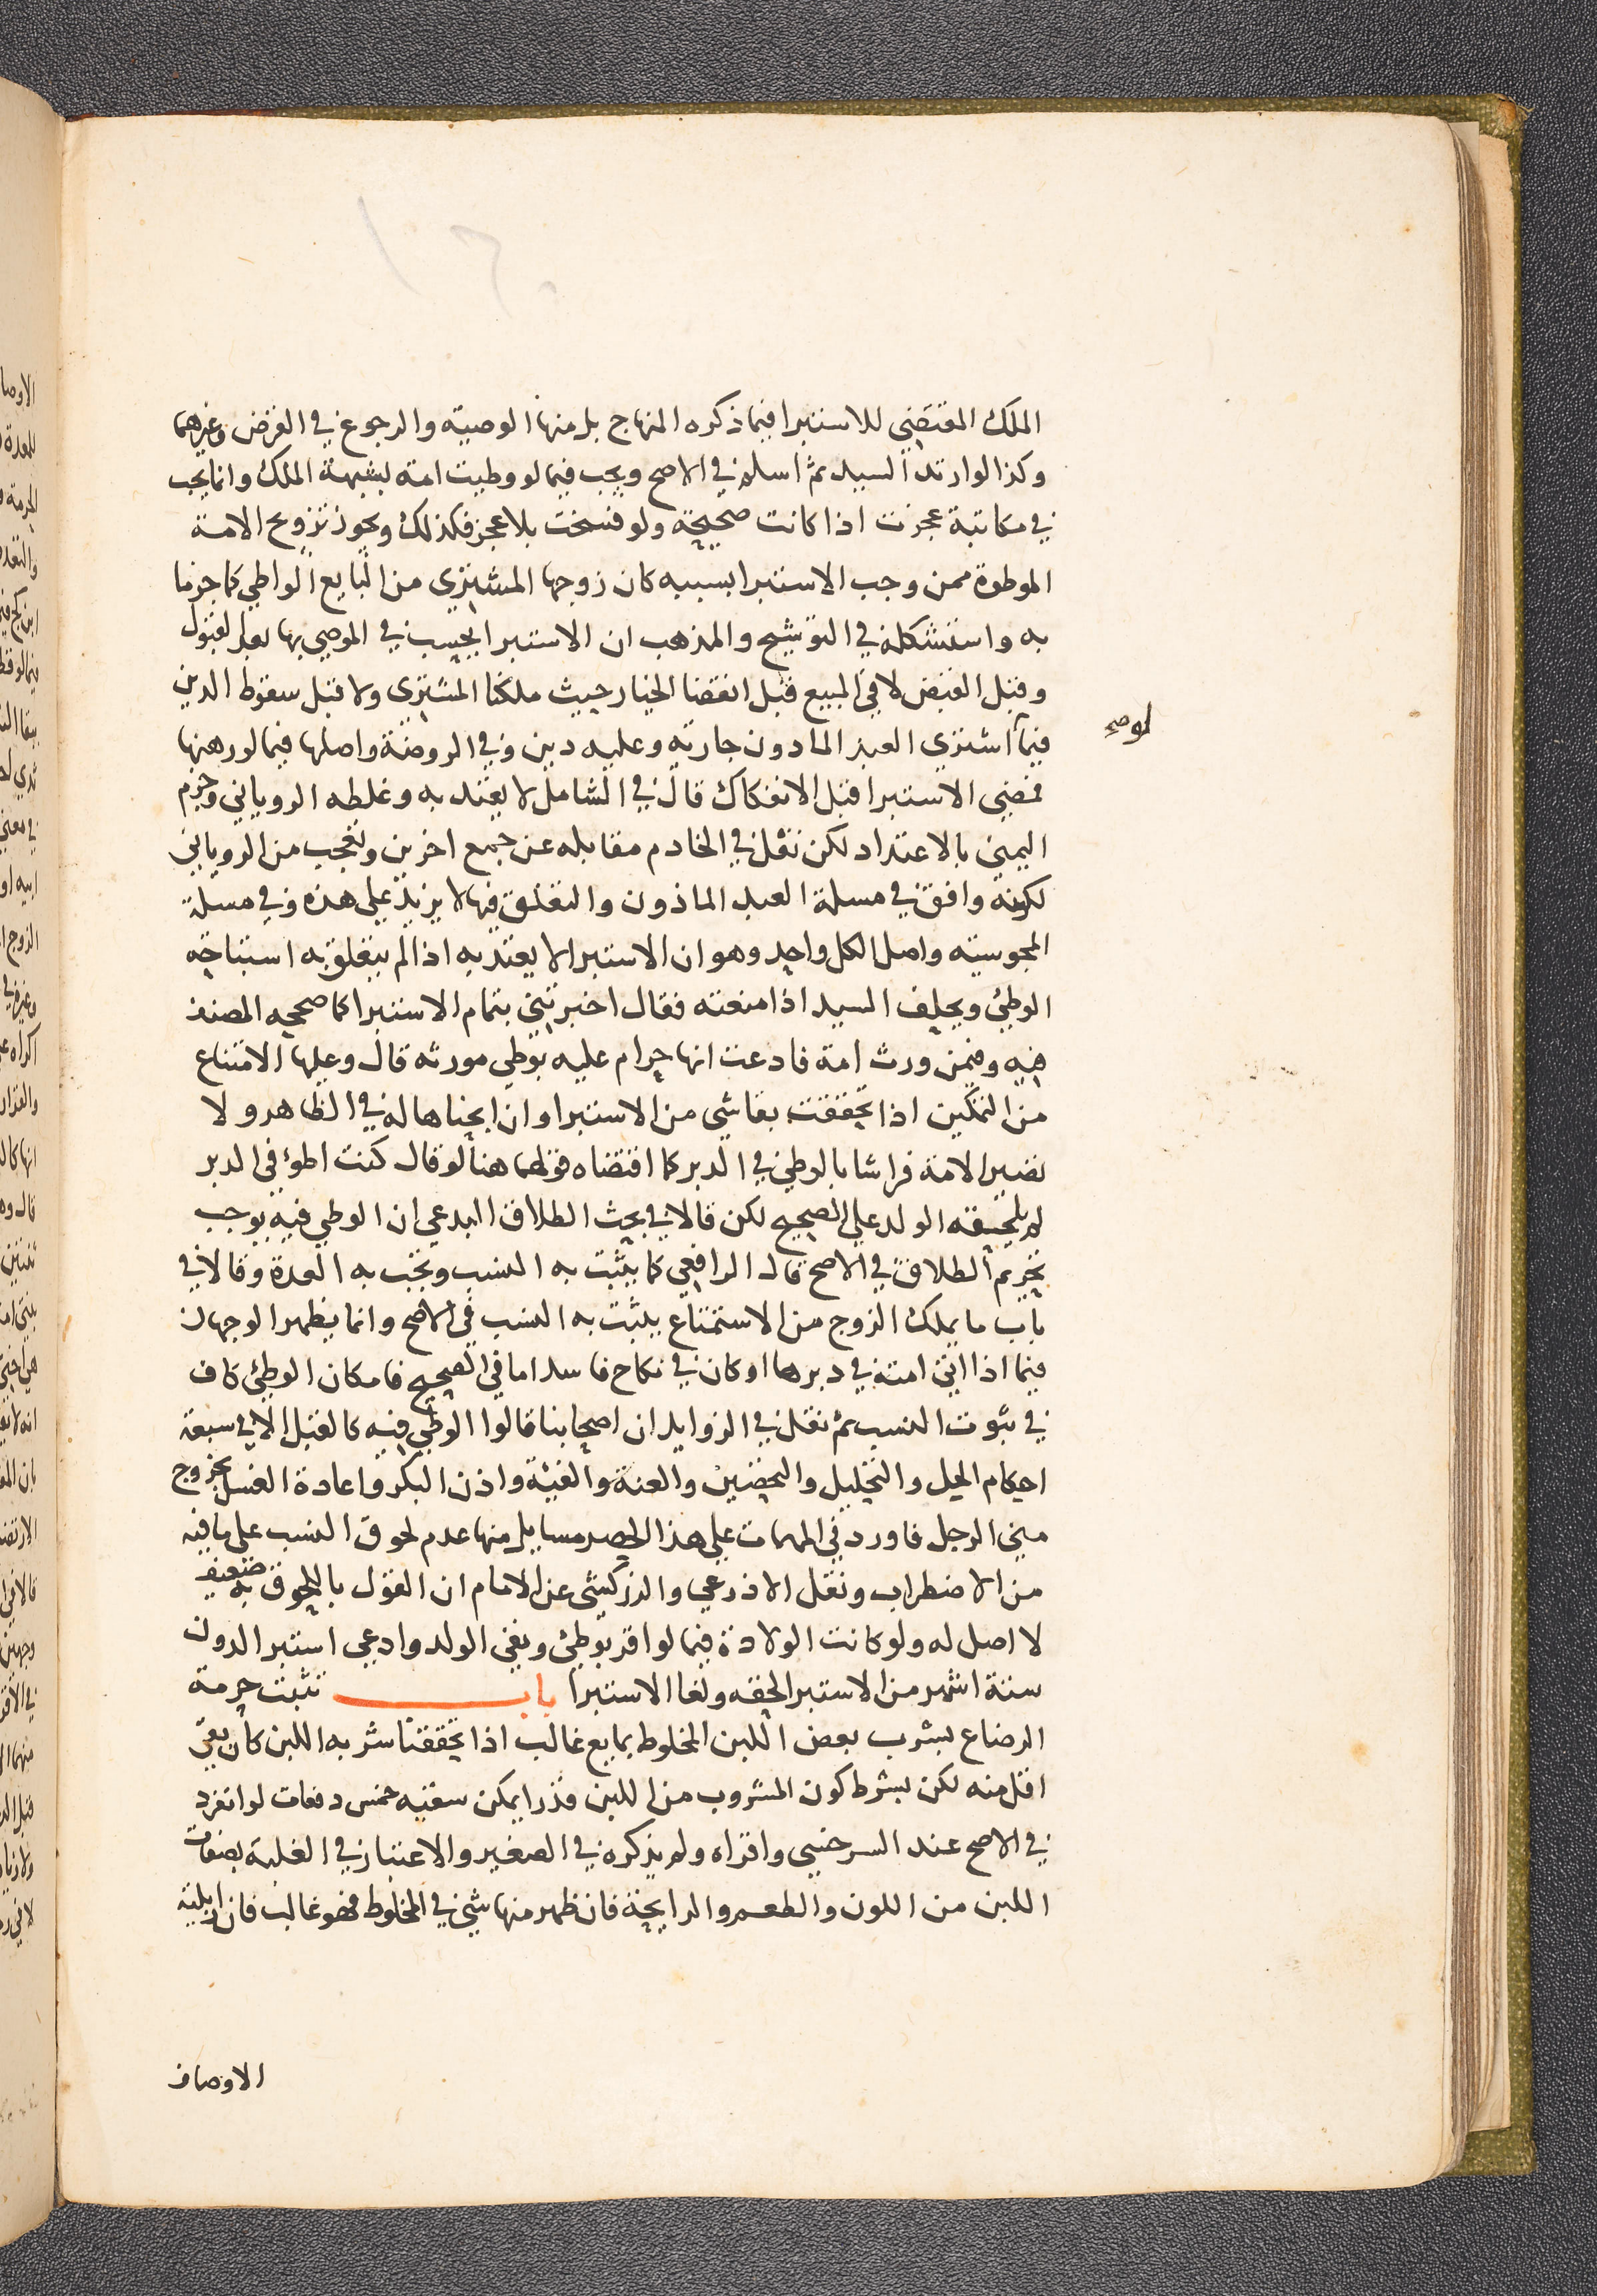 الملك المقتضي للاستبرا فيما ذكره المنهاج بل منها الوصية والرجوع في القرض وغيرهما
وكذا لو ارتد السيد ثم اسلم في الاصح ويجب فيما لو وطيت امة بشبهة الملك وانما يجب
في مكاتبة عجزت اذا كانت صحيحة ولو فسخت بلا عجز فكذلك ويجوز تزويج الامة
الموطوة ممن وجب الاستبرا بسببه كان زوجها المشتري من البايع الواطي كما جزما
به واستشكله في التوشيح والمذهب ان الاستبرا يحسب في الموصي بها بعد القبول
وقبل القبض لا في المبيع قبل انقضا الخيار حيث ملكنا المشتري ولا قبل سقوط الدين
فيما اشتري العبد الماذون جارية وعليه دين وفي الروضة واصلها فيما لو رهنها
لو صح
فمضي الاستبرا قبل الانفكاك قال في الشامل لا يعتد به وغلطه الروياني وجزم
اليمني بالاعتداد لكن نقل في الخادم مقابله عن جمع اخرين وتعجب من الروياني
لكونه وافق في مسلة العبد الماذون والتعلق فيها لا يزيد علي هذه وفي مسلة
المجوسية واصل الكل واحد وهو ان الاستبرا لا يعتد به اذا لم يتعلق به استباحة
الوطئ ويحلف السيد اذا منعته فقال اخبرتني بتمام الاستبرا كما صححه المصنف
فيه وفيمن ورث امة فادعت انها حرام عليه بوطي مورثه قال وعليها الامتناع
من التمكين اذا تحققت بقا شي من الاستبرا وان ابحناها له في الظاهر ولا
تصير الامة فراشا بالوطي في الدبر كما اقتضاه قولهما هنا لو قال كنت اطؤ في الدبر
لم يلحقه الولد علي الصحيح لكن قالا في بحث الطلاق البدعي ان الوطي فيه يوجب
تحريم الطلاق في الاصح قال الرافعي كما يثبت به النسب وتجب به العدة وقالا في
باب ما يملك الزوج من الاستمتاع يثبت به النسب في الاصح وانما يظهر الوجهان
فيما اذا اتي امته في دبرها او كان في نكاح فاسد اما في الصحيح فامكان الوطئ كاف
في ثبوت النسب ثم نقل في الزوايد ان اصحابنا قالوا الوطي فيه كالقبل الا في سبعة
احكام الحل والتحليل والتحصين والعنة والفيئة واذن البكر واعادة الغسل بخروج
مني الرجل فاورد في المهمات علي هذا الحصر مسايل منها عدم لحوق النسب علي ما فيه
من الاضطراب ونقل الاذرعي والزركشي عن الامام ان القول باللحوق به ضعيف
لا اصل له ولو كانت الولادة فيما لو اقر بوطئ ونفي الولد وادعي استبرا لدون
ستة اشهر من الاستبرا لحقه ولغا الاستبرا باب تثبت حرمة
الرضاع بشرب بعض اللبن المخلوط بمايع غالب اذا تحققنا شربه اللبن كان بقي
اقل منه لكن بشرط كون المشروب من اللبن قدرا يمكن سقيه خمس دفعات لو انفرد
في الاصح عند السرخسي واقراه ولم يذكره في الصغير والاعتبار في الغلبة بصفات
اللبن من اللون والطعم والرايحة فان ظهر منها شي في المخلوط فهو غالب فان زايلته
الاوصاف